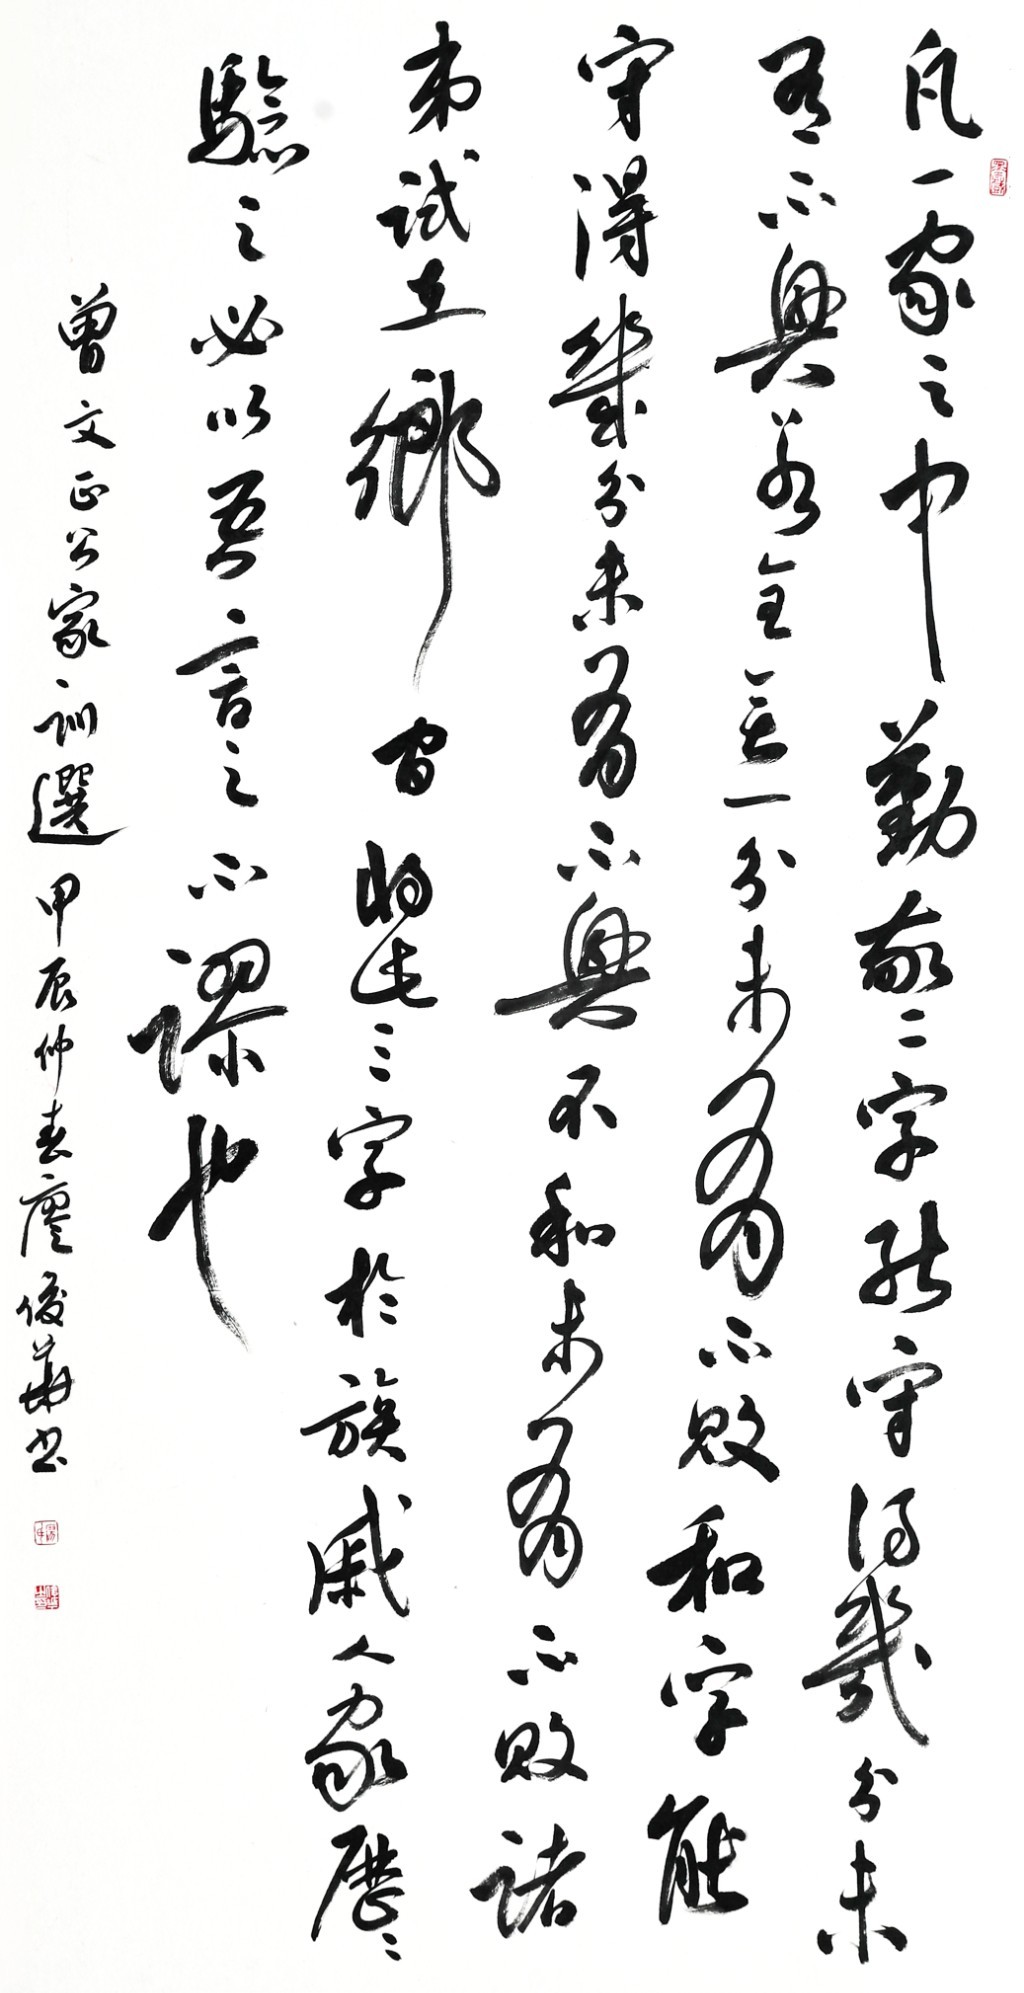 凡一家之中勤敬二字能守得幾分未
有不興若全無一分未有有不敗和字能
守得幾分未有不興不和未有不敗諸
弟試在鄉間將此三字於族戚人家歷々
驗之必以吾言之不謬也
曾文正公家訓選 甲辰仲春廖俊華书